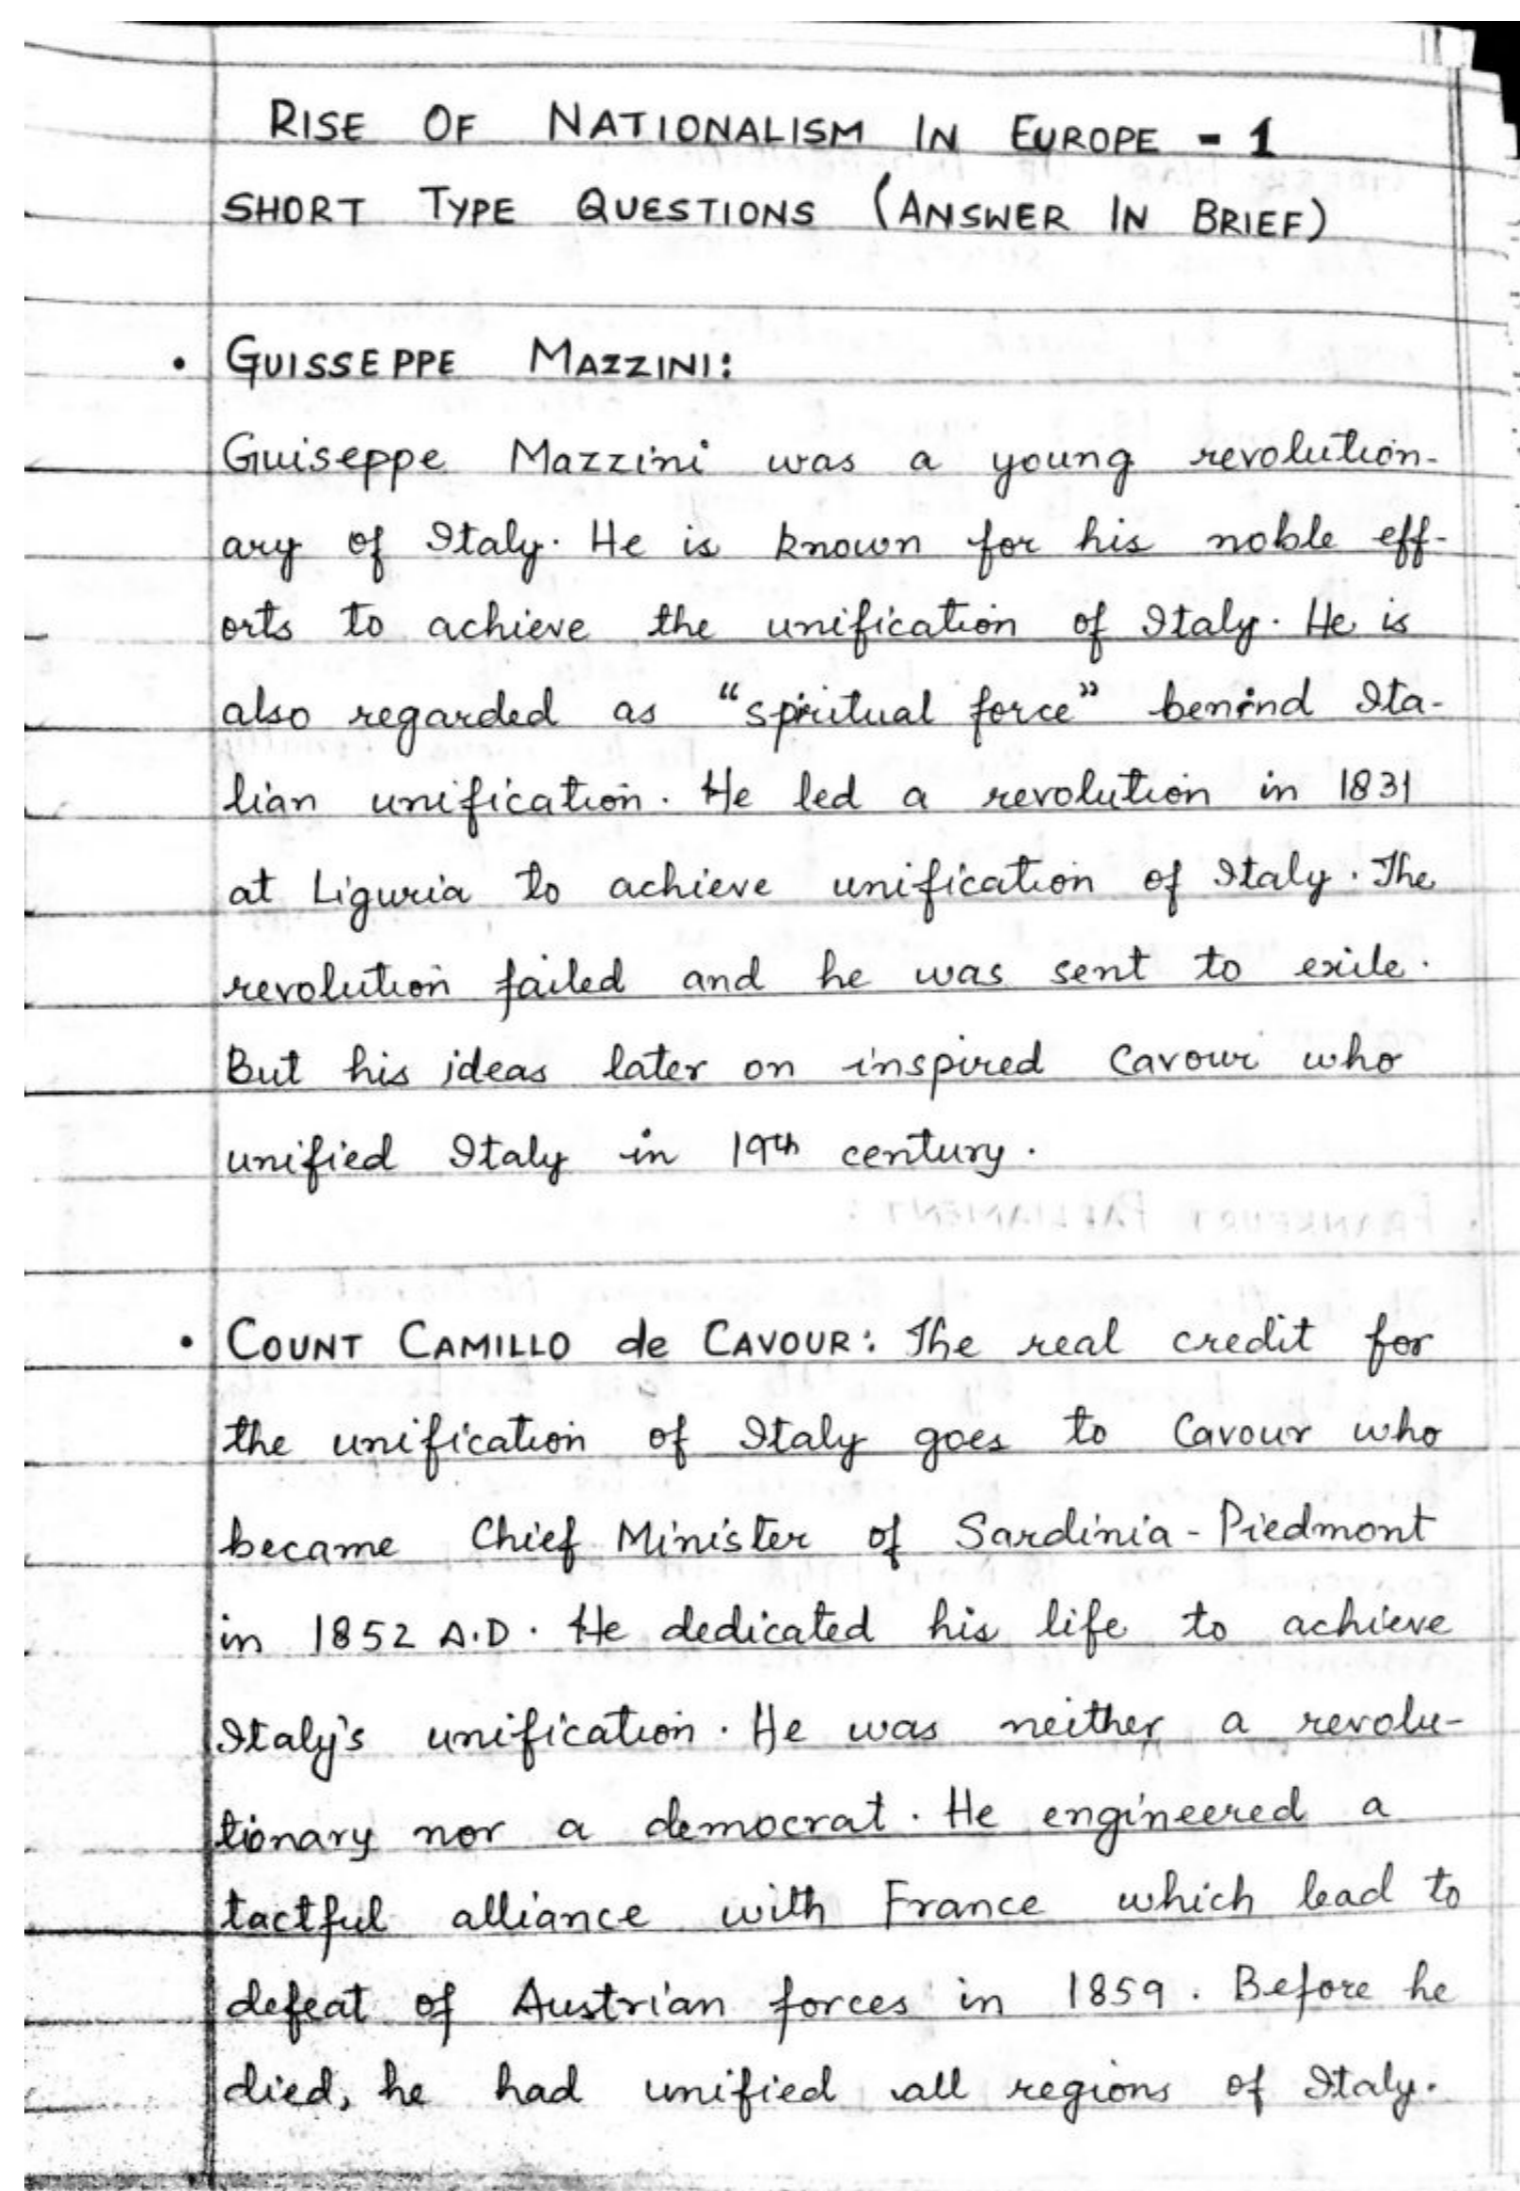 RISE OF NATIONALISM IN EUROPE - 1
SHORT TYPE QUESTIONS (ANSWER IN BRIEF)
• GUISSEPPE MAZZINI:
Guiseppe Mazzini was a young revolution-
ary of Italy. He is known for his noble eff-
orts to achieve the unification of Italy. He is
also regarded as "spiritual force" behind Ita-
lian unification. He led a revolution in 1831
at Liguria to achieve unification of Italy. The
revolution failed and he was sent to exile.
But his ideas later on inspired Cavour who
unified Italy in 19th century.
• COUNT CAMILLO de CAVOUR: The real credit for
the unification of Italy goes to Cavour who
became Chief Minister of Sardinia-Piedmont
in 1852 A.D. He dedicated his life to achieve
Italy's unification. He was neither a revolu-
tionary nor a democrat. He engineered a
tactful alliance with France which lead to
defeat of Austrian forces in 1859. Before he
died, he had unified all regions of Italy.